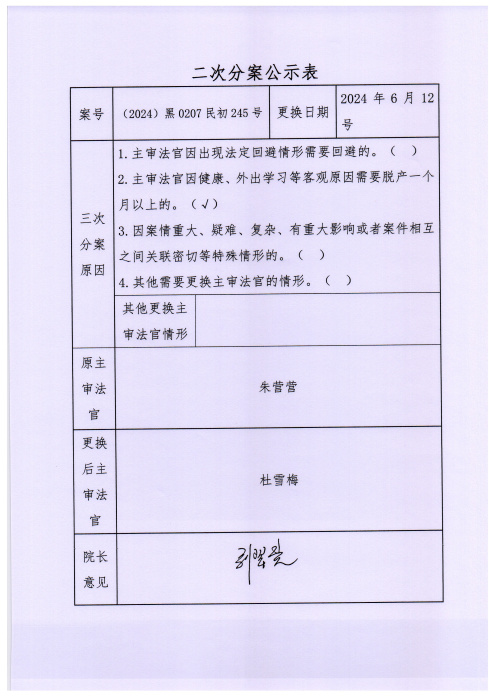 二次分案公示表
案号
(2024)黑0207民初245号
更换日期
2024年6月12
号
三次
分案
原因
1.主审法官因出现法定回避情形需要回避的。（ ）
2.主审法官因健康、外出学习等客观原因需要脱产一个
月以上的。（√）
3.因案情重大、疑难、复杂、有重大影响或者案件相互
之间关联密切等特殊情形的。（ ）
4.其他需要更换主审法官的情形。（ ）
其他更换主
审法官情形
原主
审法
官
朱营营
更换
后主
审法
官
杜雪梅
院长
意见